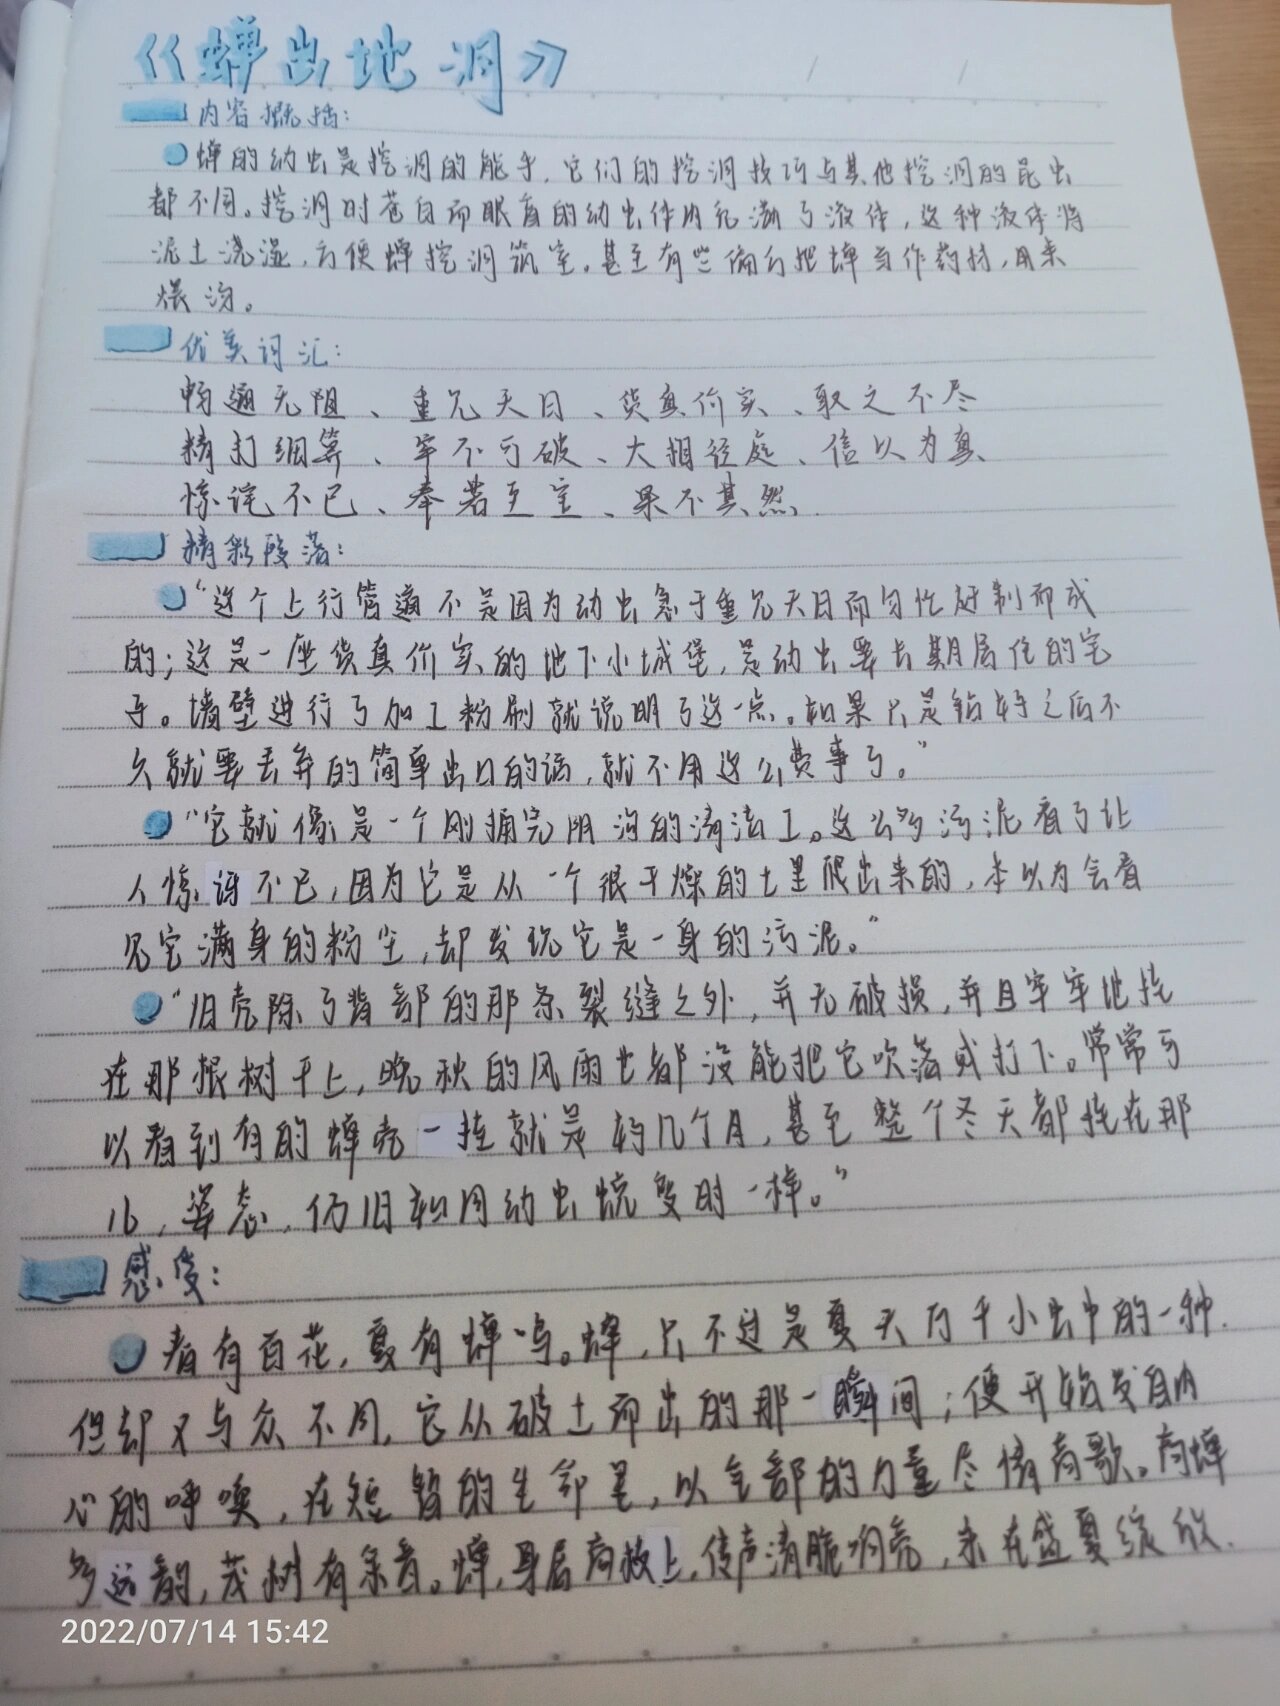 《蝉出地洞》
内容概括：
蝉的幼虫是挖洞的能手，它们的挖洞技巧与其他挖洞的昆虫
都不同。挖洞时苍白而眼盲的幼虫体内充满了液体，这种液体将
泥土浇湿，方便蝉挖洞筑室。甚至有些偏方把蝉当作药材，用来
煨汤。
优美词汇：
畅通无阻、重见天日、货真价实、取之不尽
精打细算、牢不可破、大相径庭、信以为真
惊诧不已、奉若至宝、果不其然
精彩段落：
“这个上行管道不是因为幼虫急于重见天日而匆忙赶制而成
的；这是一座货真价实的地下小城堡，是幼虫要长期居住的宅
子。墙壁进行了加工粉刷就说明了这一点。如果只是钻好之后不
久就要丢弃的简单出口的话，就不用这么费事了。”
“它就像是一个刚捅完阴沟的清洁工。这么多污泥看了让
人惊讶不已，因为它是从一个很干燥的土里爬出来的，本以为会看
见它满身的粉尘，却发现它是一身的污泥。”
“旧壳除了背部的那条裂缝之外，并无破损，并且牢牢地挂
在那根树干上，晚秋的风雨也都没能把它吹落或打下。常常可
以看到有的蝉壳一挂就是好几个月，甚至整个冬天都挂在那
儿，姿态，仍旧和同幼虫蜕变时一样。”
感受：
春有百花，夏有蝉鸣。蝉，只不过是夏天万千小虫中的一种.
但却又与众不同，它从破土而出的那一瞬间；便开始发自内
心的呼唤，在短暂的生命里，以全部的力量尽情高歌。高蝉
多远韵，茂树有余音。蝉，身居高枝上，传声清脆响亮，未在盛夏绽放.
2022/07/14 15:42